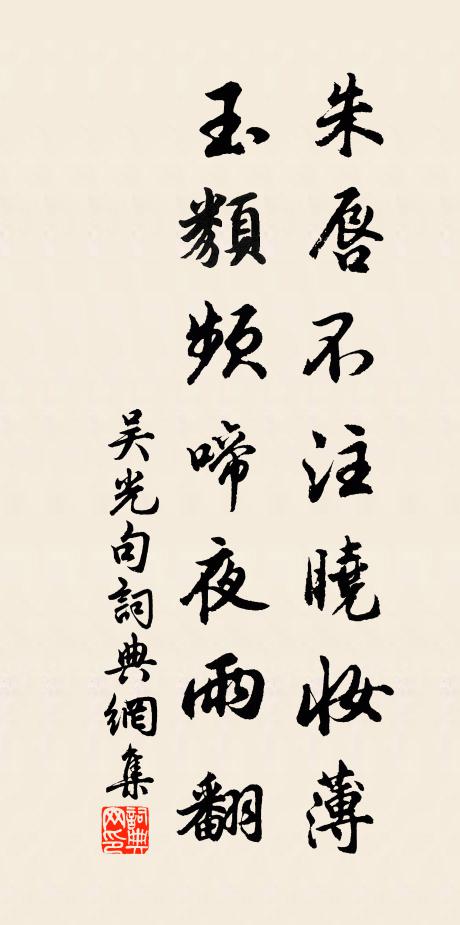 朱唇不注曉妝薄
玉纇頻啼夜雨翻
吴光句詞典網集
詞典网印